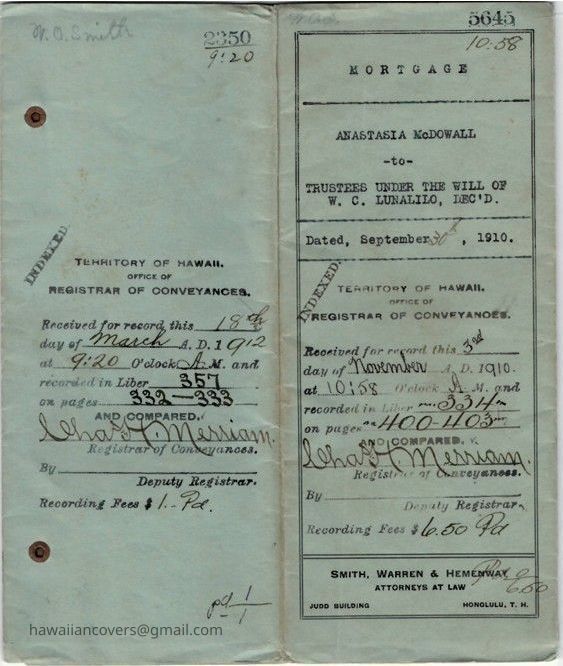 W. O. Smith
2350
9:20
INDEXED.
TERRITORY OF HAWAII.
OFFICE OF
REGISTRAR OF CONVEYANCES.
Received for record this 18th
day of March A. D. 1912
at 9:20 O'clock A. M. and
recorded in Liber 357
on pages 332-333
AND COMPARED.
Chas H. Merriam.
Registrar of Conveyances.
By
Deputy Registrar.
Recording Fees $ 1.- Pd.
hawaiiancovers@gmail.com
5645
10:58
MORTGAGE
ANASTASIA McDOWALL
-to-
TRUSTEES UNDER THE WILL OF
W. C. LUNALILO, DEC'D.
Dated, September 30th, 1910.
INDEXED.
TERRITORY OF HAWAII.
OFFICE OF
REGISTRAR OF CONVEYANCES.
Received for record this 3rd
day of November A. D. 1910.
at 10:58 O'clock A M. and
recorded in Liber 334
on pages 400-403
AND COMPARED.
Chas H. Merriam.
Registrar of Conveyances.
By
Deputy Registrar.
Recording Fees $ 6.50 Pd
SMITH, WARREN & HEMENWAY
ATTORNEYS AT LAW
6.50
JUDD BUILDING HONOLULU, T. H.